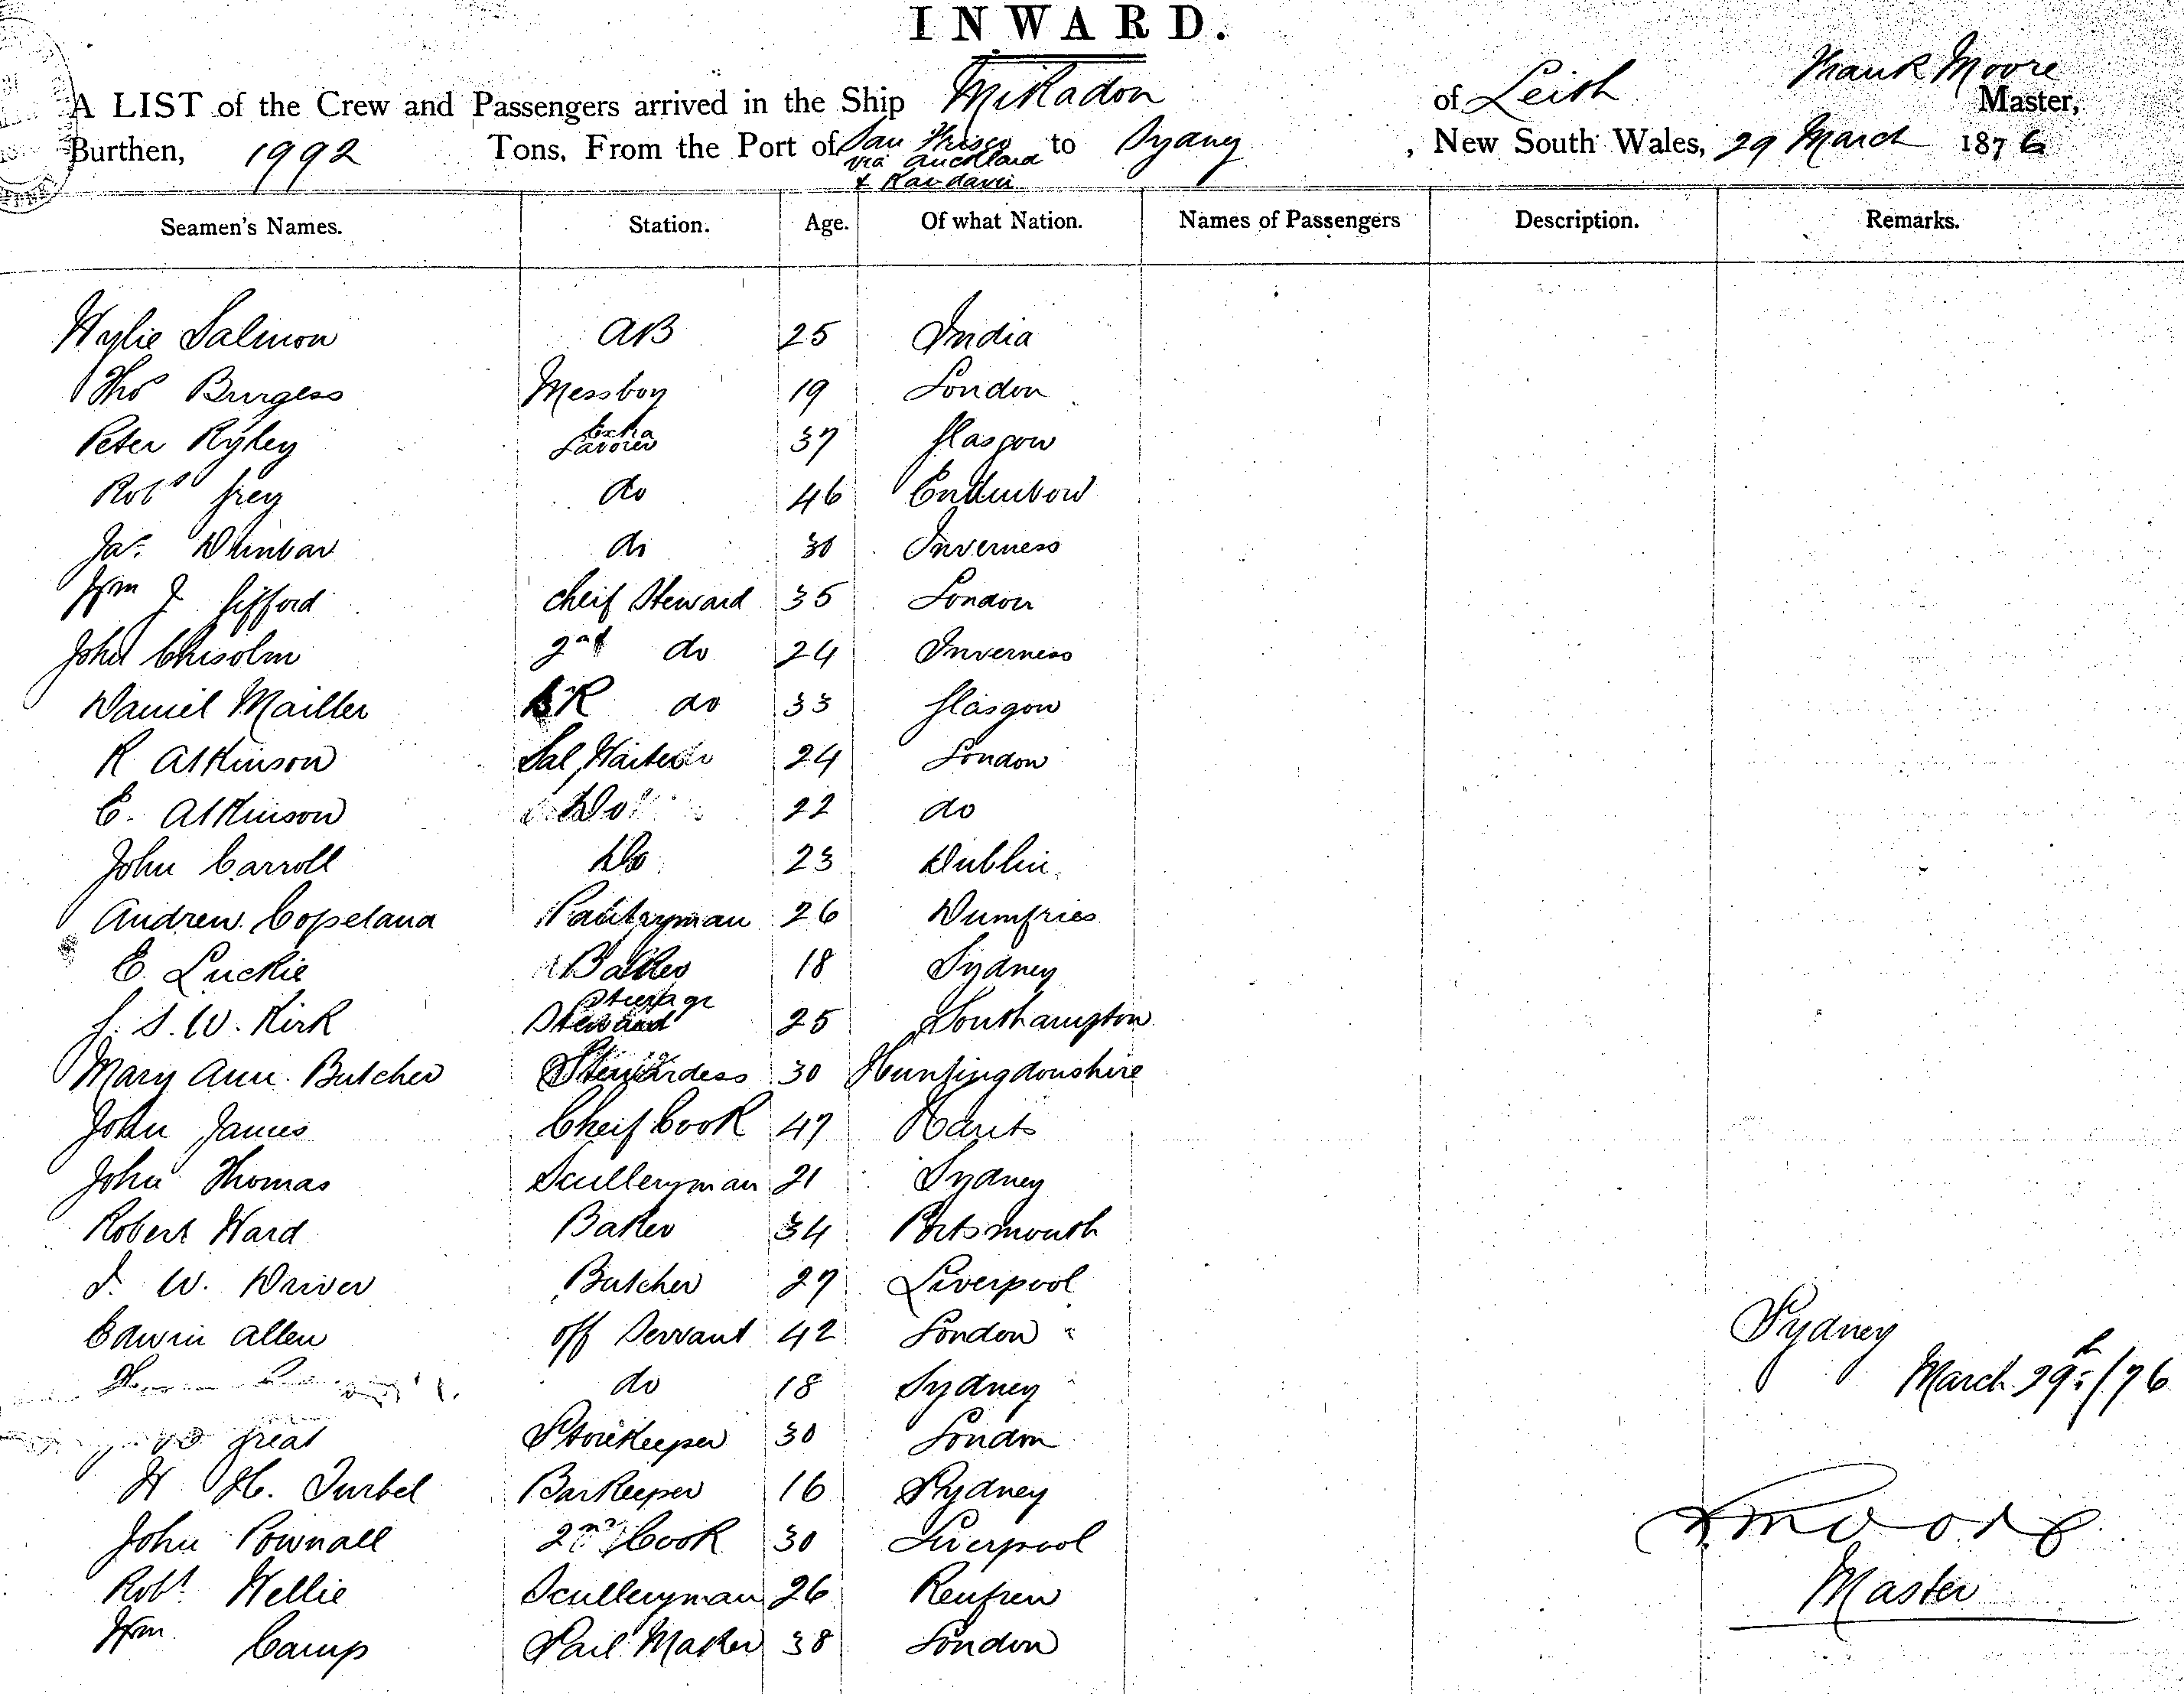 INWARD.
A LIST of the Crew and Passengers arrived in the Ship Mikadon of Leith Frank Moore Master,
Burthen, 1992 Tons, From the Port of San Frisco via Auckland & Kandavu to Sydney, New South Wales, 29 March 1876
Seamen's Names. Station. Age. Of what Nation. Names of Passengers Description. Remarks.
Wylie Salmon AB 25 India
Thos Burgess Messboy 19 London
Peter Ryley Extra 37 Glasgow
Robt Grey do 46 
Jas. Dunbar do 30 Inverness
Wm J Gifford Cheif Steward 35 London
John Chisolm 2nd do 24 Inverness
Daniel Mailler BR do 33 Glasgow
R Atkinson Sal Waiter 24 London
E. Atkinson Do 22 do
John Carroll Do 23 Dublin
Andrew Copeland Pantryman 26 Dumfries
E. Luckie Baker 18 Sydney
G. S. W. Kirk Steerage Steward 25 Southampton
Mary Ann Butcher Stewardess 30 Huntingdonshire
John James Cheif Cook 47 Hants
John Thomas Sculleryman 21 Sydney
Robert Ward Baker 34 Portsmouth
J. W. Driver Butcher 27 Liverpool
Edwin Allen off Servant 42 London
do 18 Sydney
Great Storekeeper 30 London
W H. Turbel Barkeeper 16 Sydney
John Pownall 2nd Cook 30 Liverpool
Robt Wellie Sculleryman 26 Renfrew
Wm Camp Sail Maker 38 London
Sydney
March 29th/76
F Moore
Master